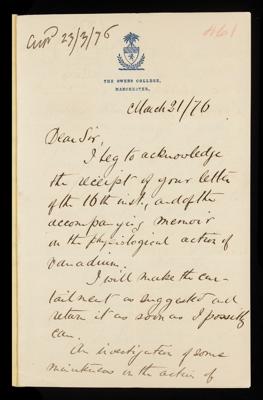 Answd 23/3/76
461
THE OWENS COLLEGE,
MANCHESTER,
March 21/76
Dear Sir,
I beg to acknowledge
the receipt of your letter
of the 16th inst., and of the
accompanying memoir
on the physiological action of
vanadium.
I will make the cur-
tailment as suggested and
return it as soon as I possibly
can.
An investigation of some
in the action of